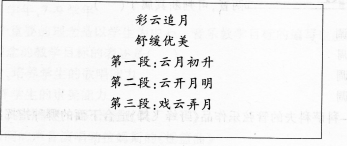 彩云追月
舒缓优美
第一段:云月初升
第二段:云开月明
第三段:戏云弄月